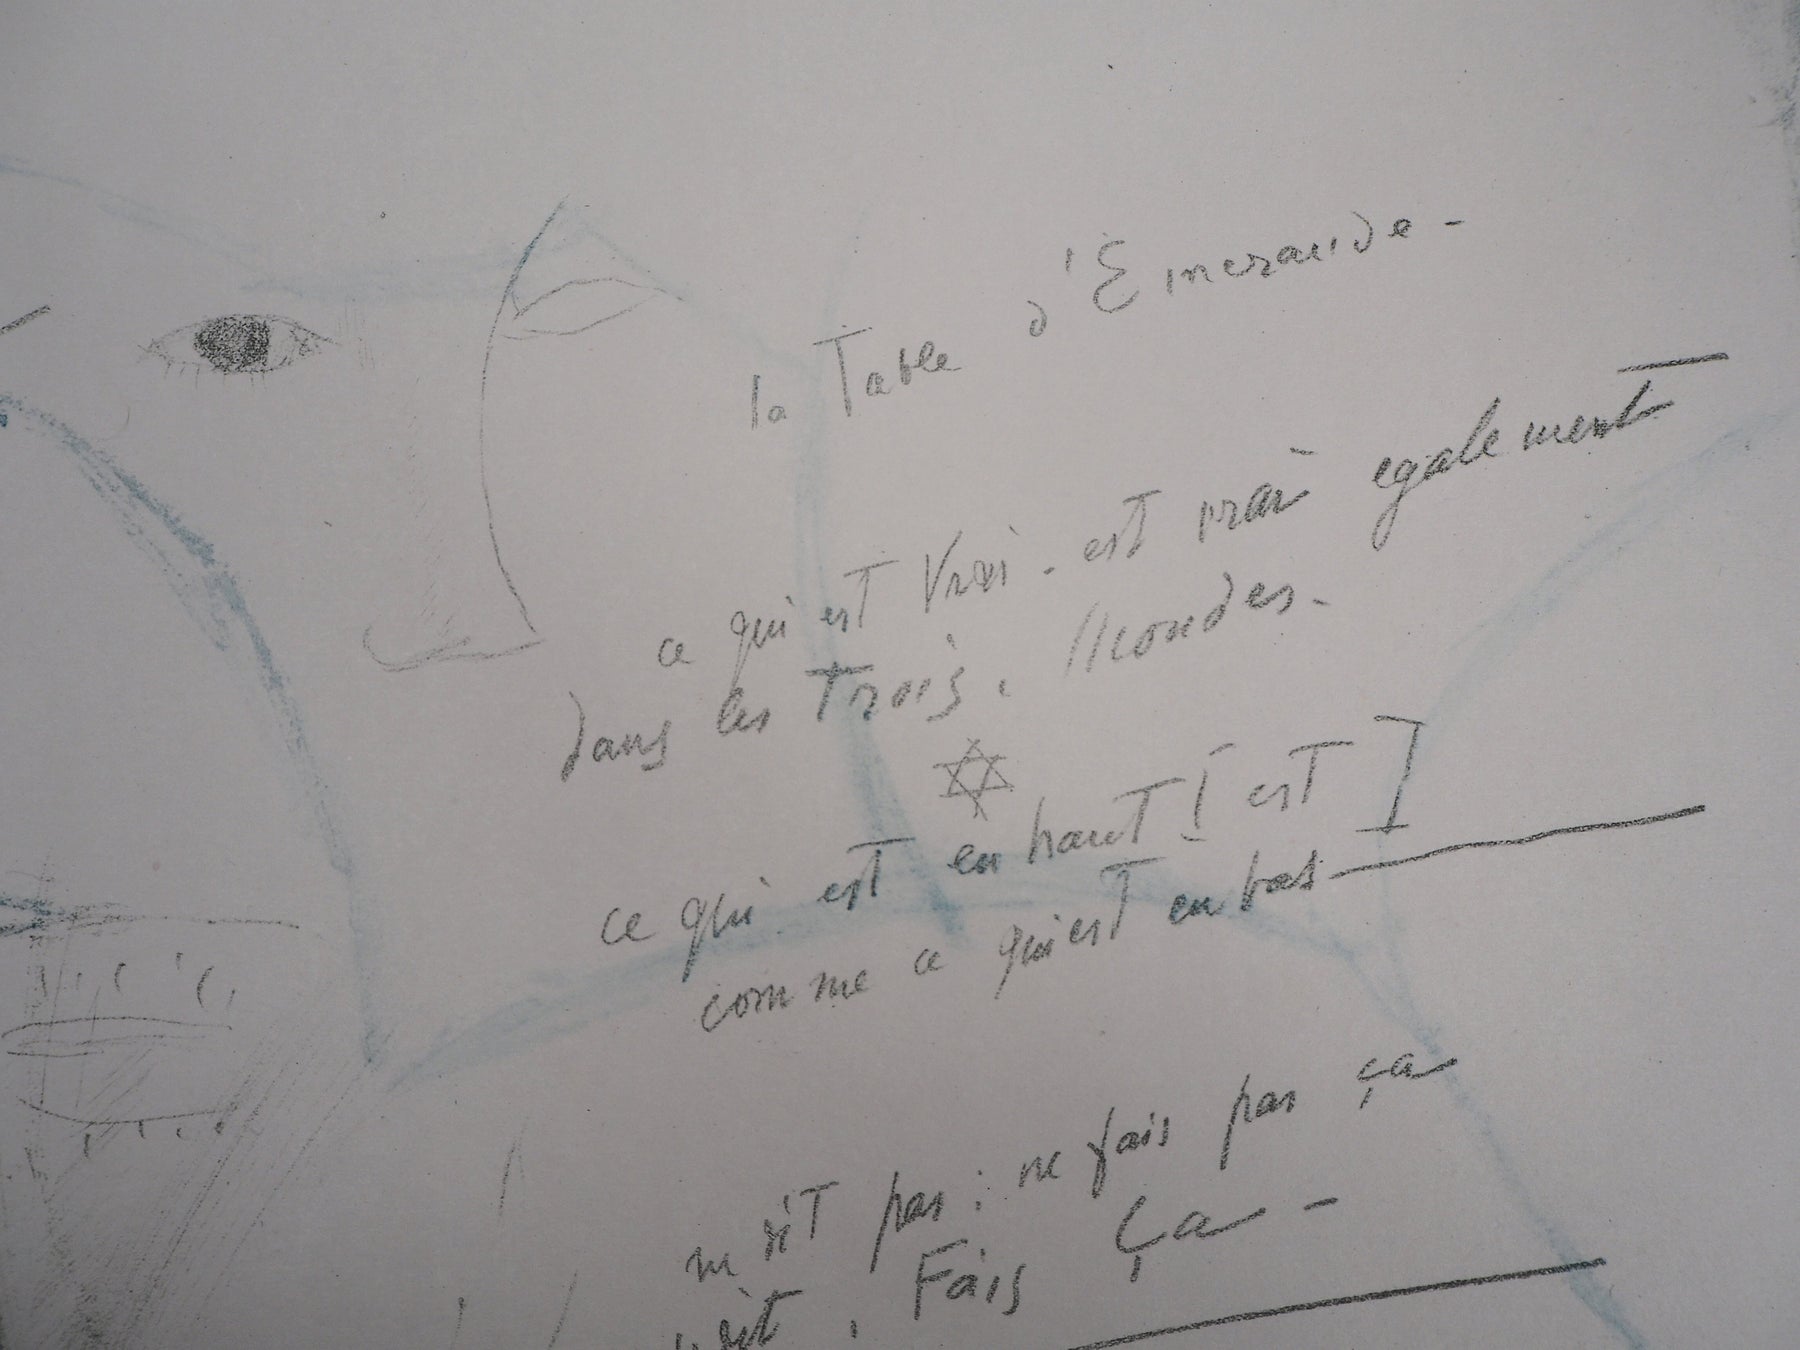 la Table d'Emeraude -
ce qui est Vrai - est vrai egalement
dans les Trois. Mondes -
ce qui est en haut [est]
comme ce qui est en bas
dit pas : ne fais pas ça
dit. Fais ça -